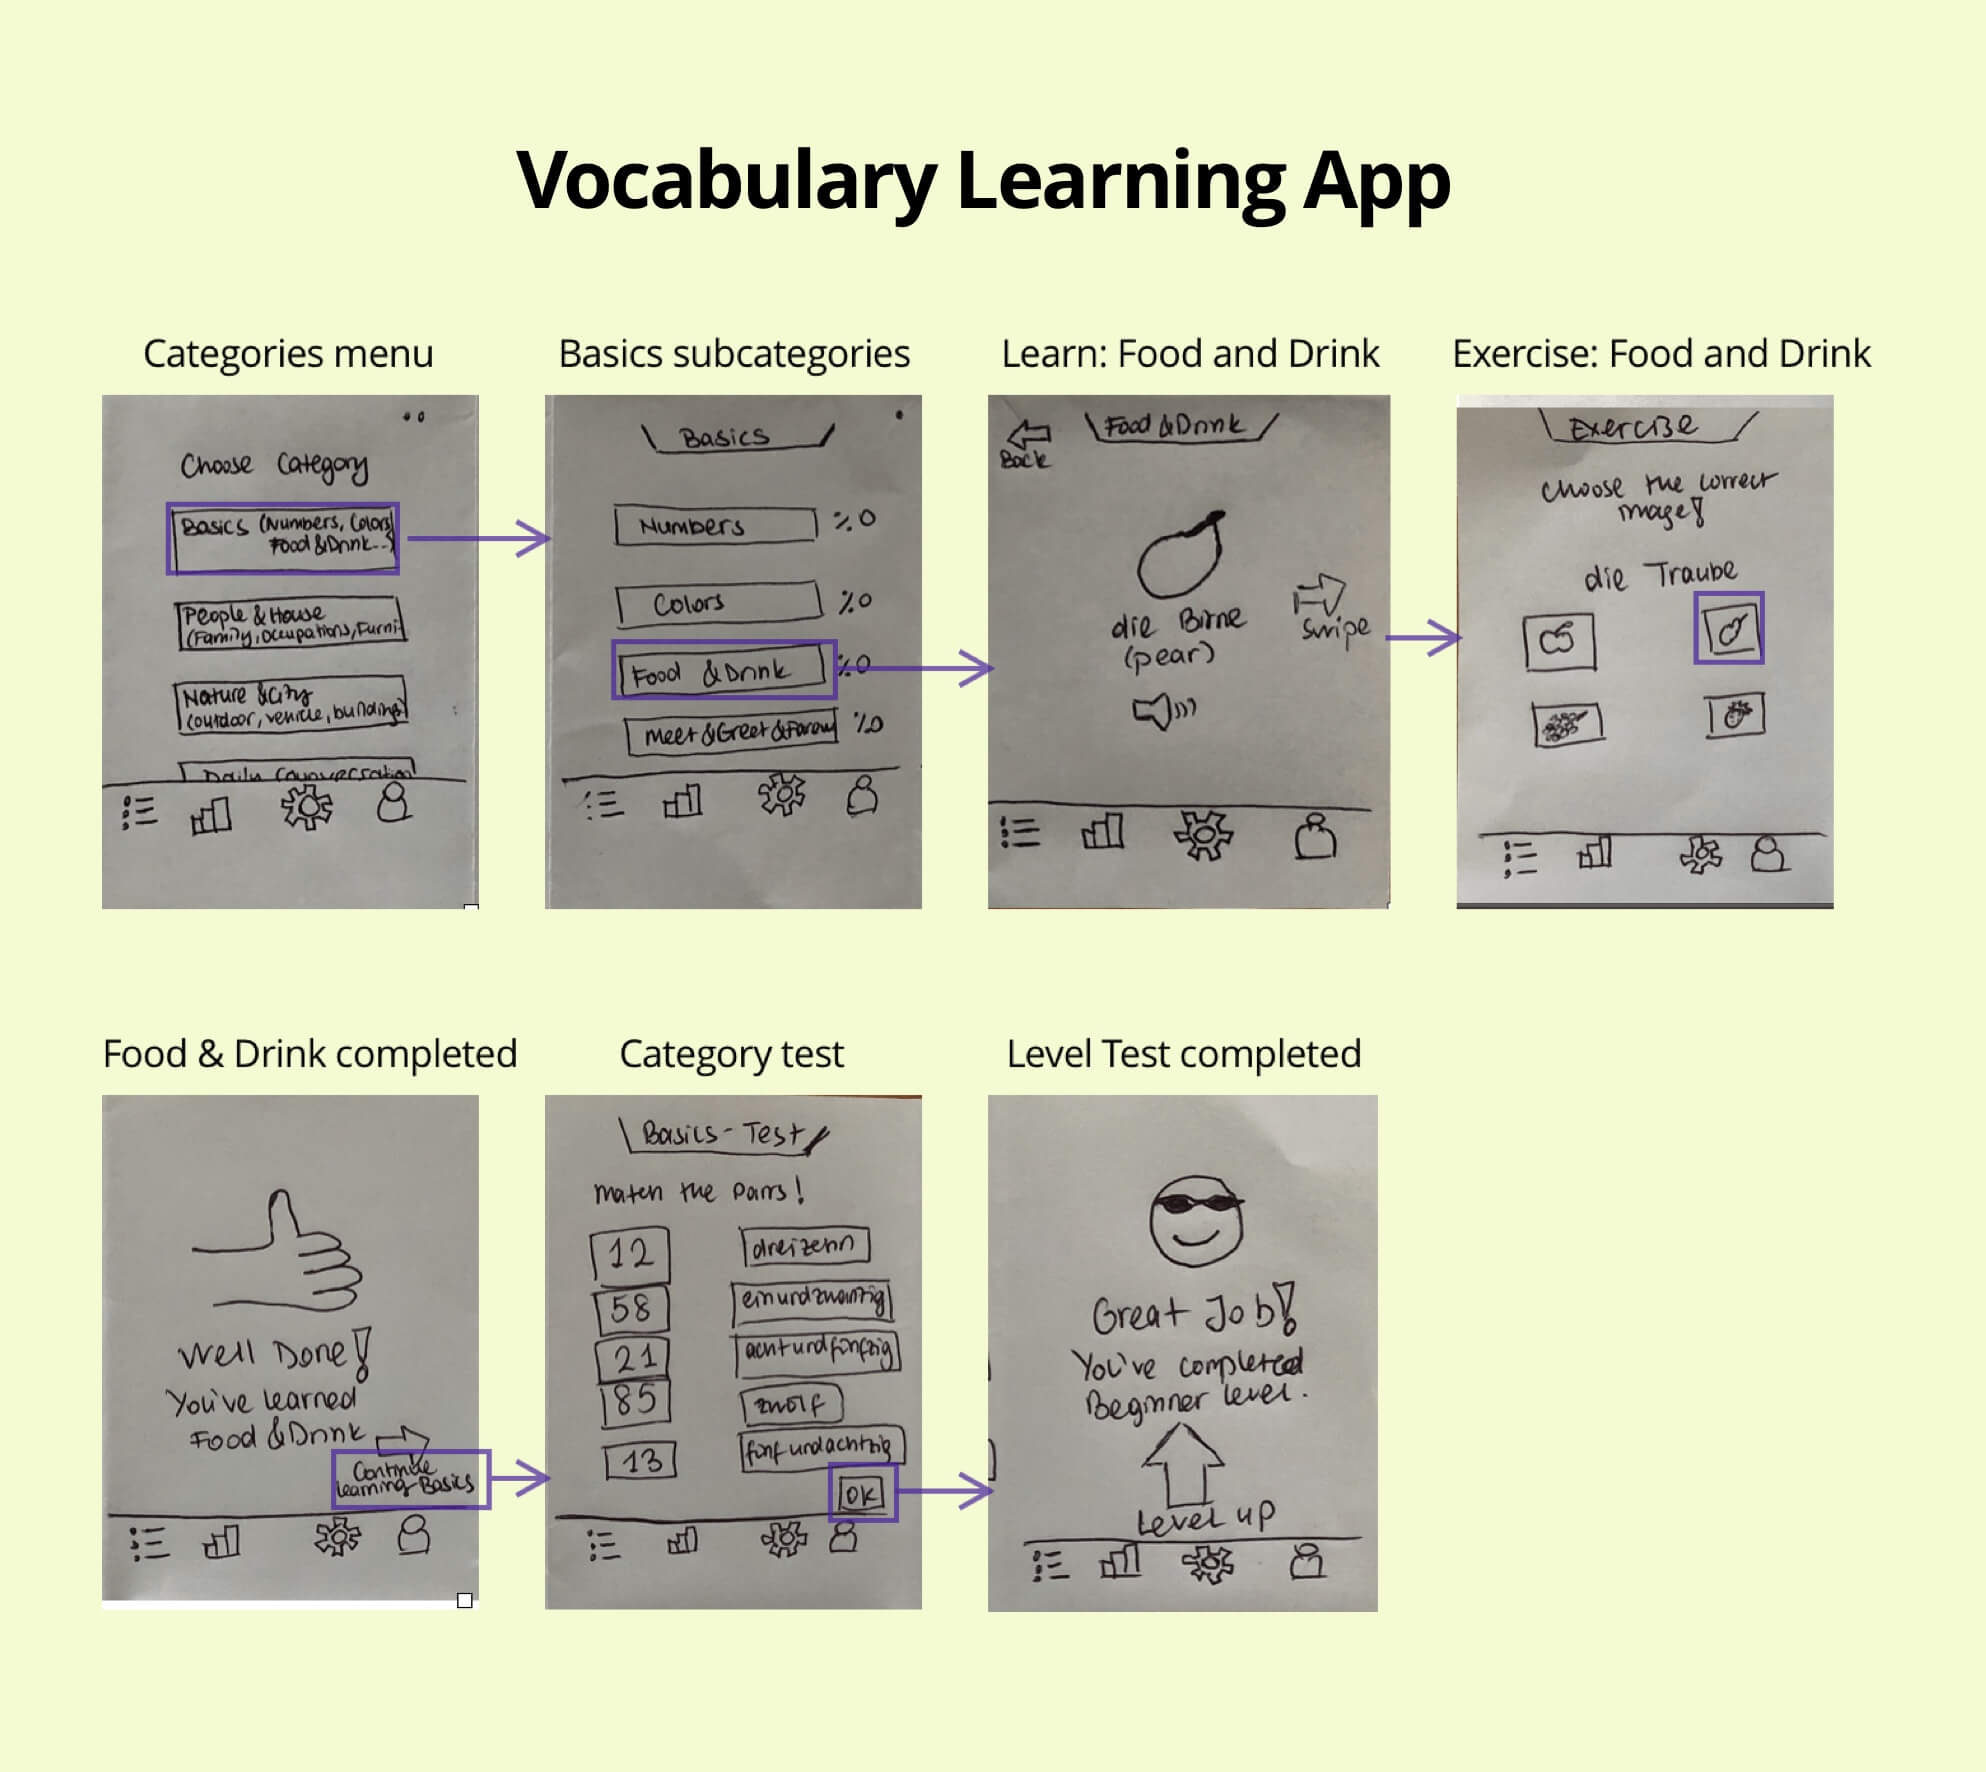 Vocabulary Learning App
Categories menu
Choose Category
Basics (Numbers, Colors
Food & Drink...)
People & House
(Family, Occupations, Furni
Nature & City
(outdoor, vehicle, buildings)
Basics subcategories
Basics
Numbers
%0
Colors
%0
Food & Drink
%0
Meet & Greet &
%0
Learn: Food and Drink
Food & Drink
Back
die Birne
(pear)
Swipe
Exercise: Food and Drink
Exercise
Choose the correct
image!
die Traube
Food & Drink completed
Well Done!
You've learned
Food & Drink
Continue
learning-Basics
Category test
Basics - Test
Match the pairs!
12
dreizehn
58
einundzwanzig
21
achtundfünfzig
85
zwölf
13
fünfundachtzig
OK
Level Test completed
Great Job!
You've completed
Beginner level.
Level up